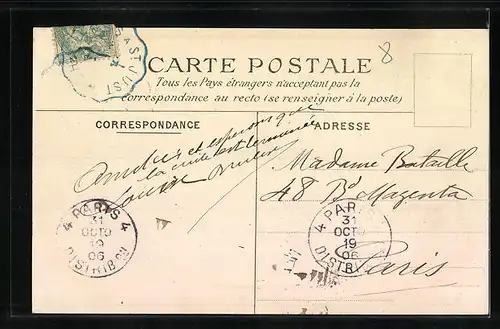 ST JUST
8
CARTE POSTALE
Tous les Pays étrangers n'acceptent pas la
correspondance au recto (se renseigner à la poste)
CORRESPONDANCE
ADRESSE
Amitiés et espérons que
la cuite est terminée
Madame Bataille
48 Bd Magenta
Paris
4 PARIS 4
31
OCTO
19
06
DISTRIBON
4 PARIS
31
OCTO
19
06
DISTRIB